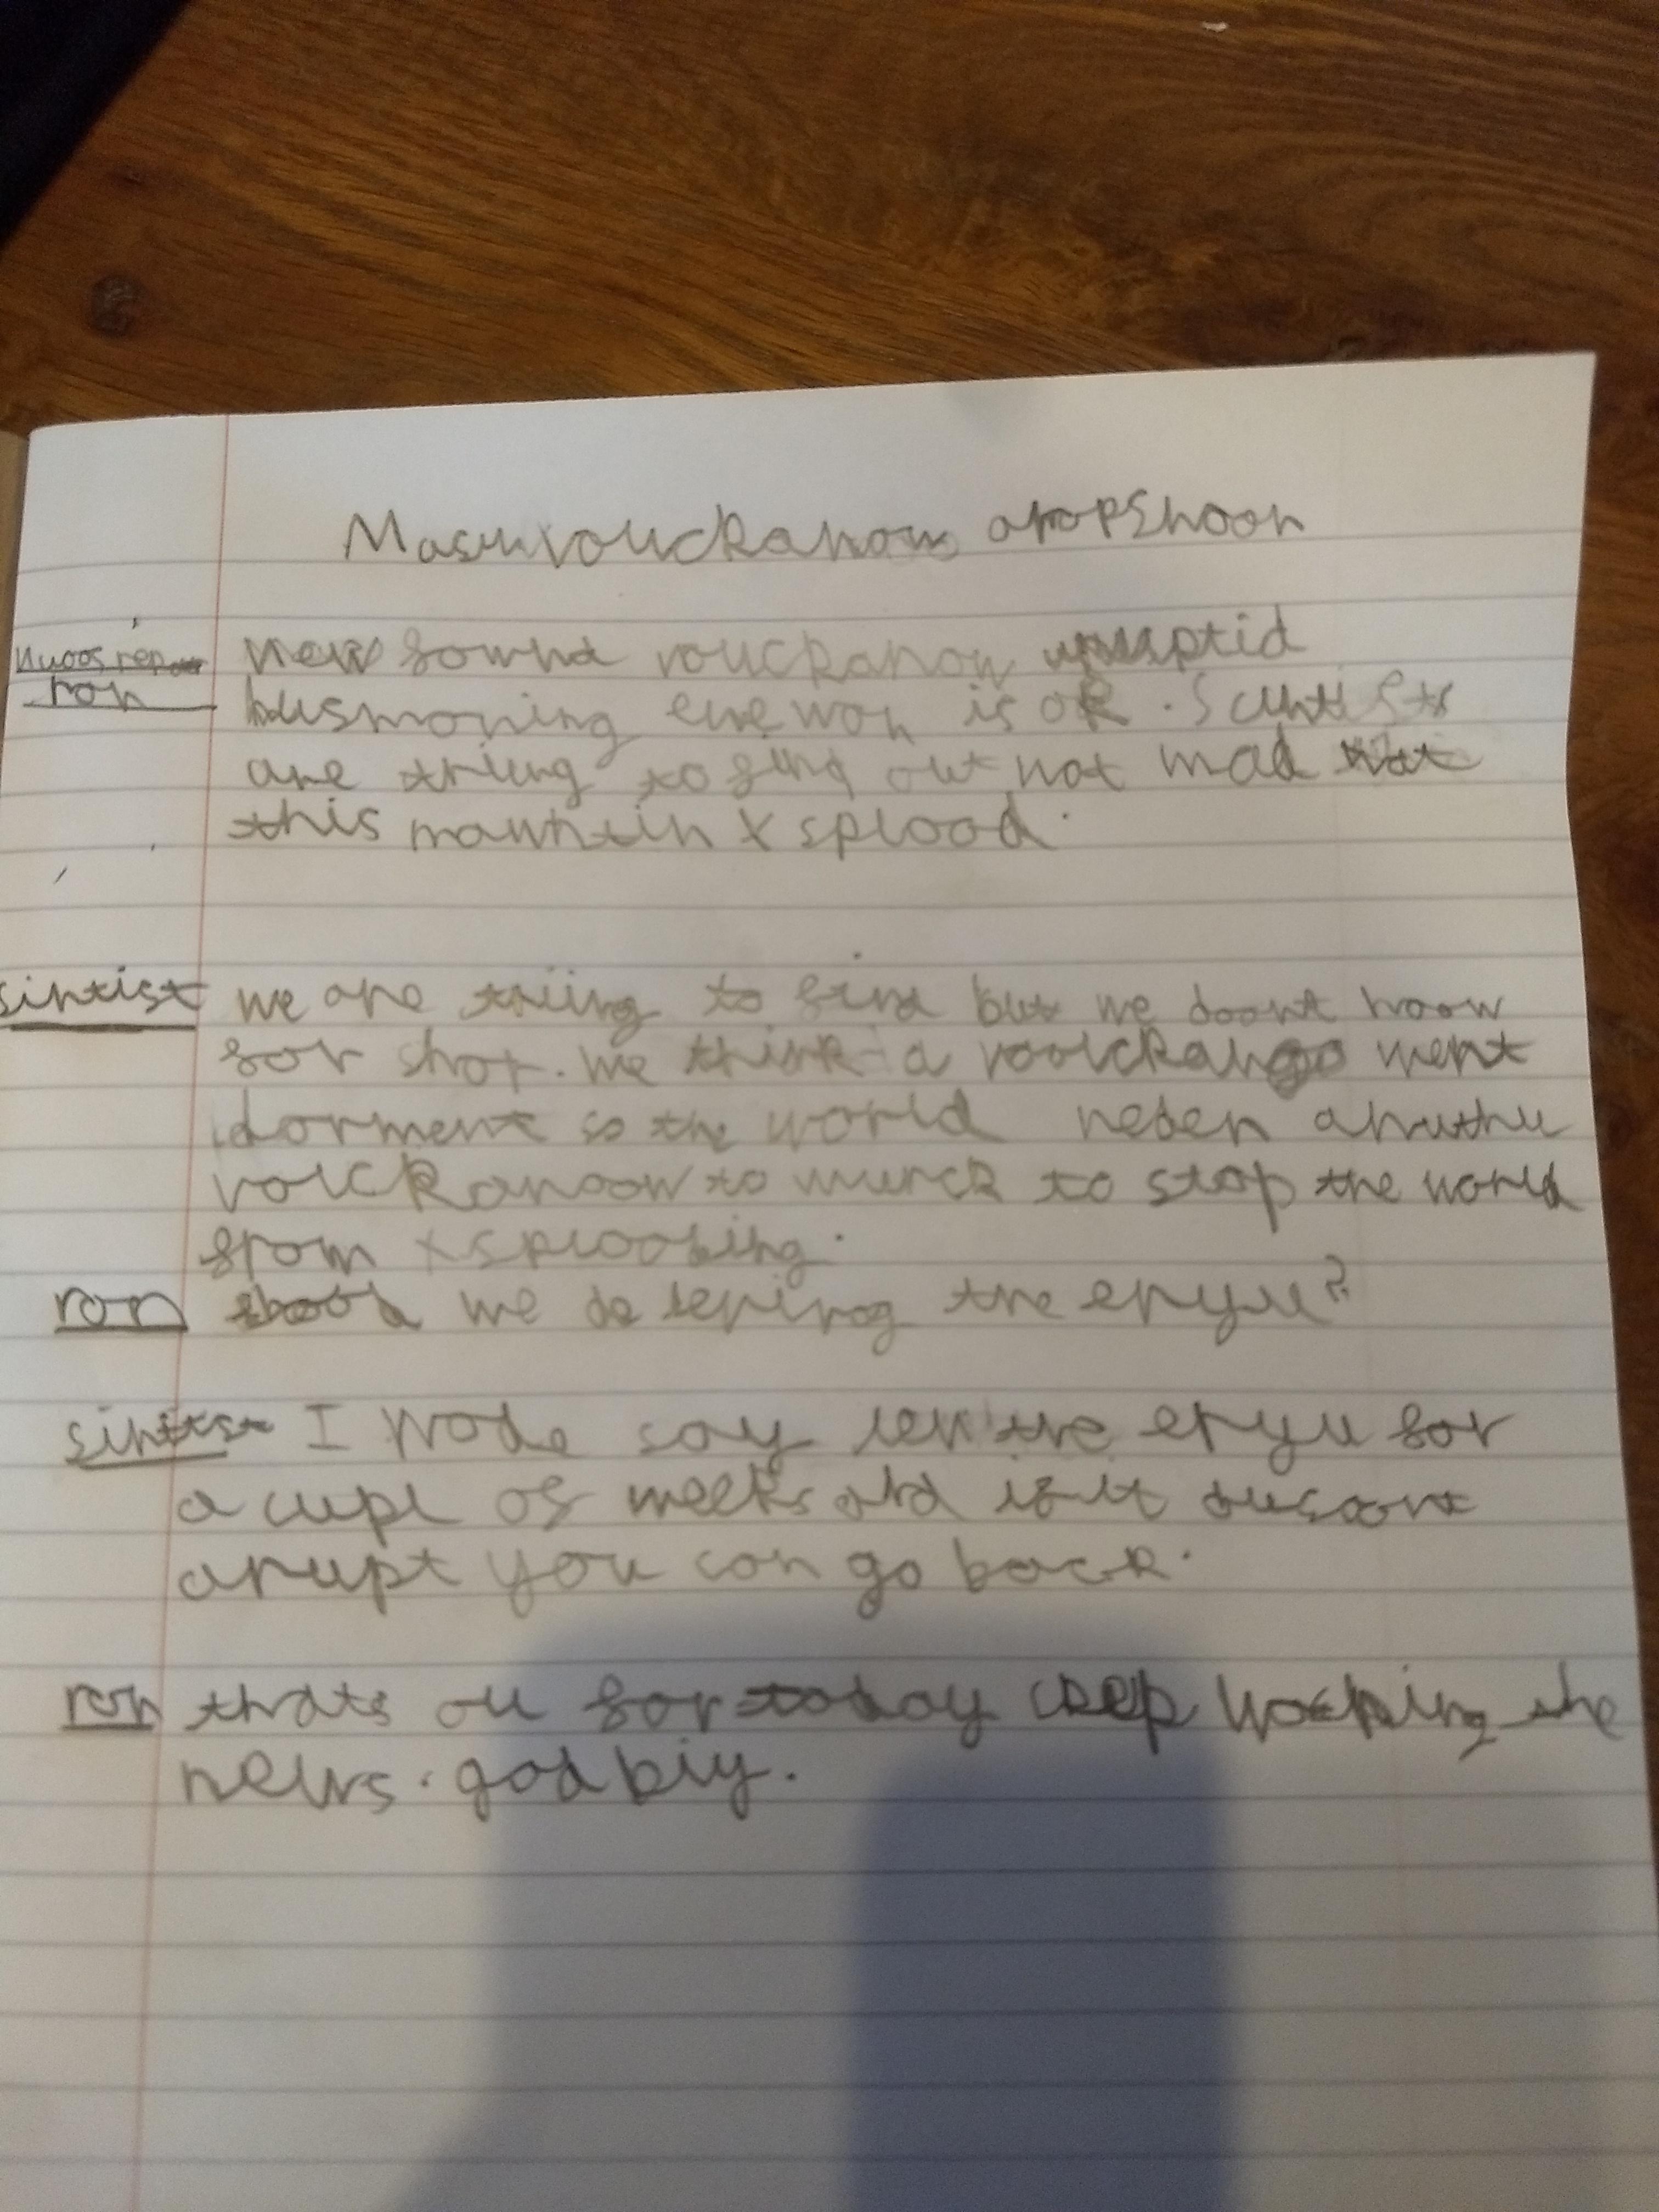 Masuivouckanow aropshoon
nuoos repor
ron
new fownd vouckanow uruptid
the smoning evewon is ok. Scintists
are triing to find out wot mad
this mawntin x splood.
sintist we are triing to find but we doont noow
for shor. we think a voolckano went
dorment so the world neden anuthu
volckanoow to wurck to stop the world
from xsplooding.
ron shood we be lering the eryu?
sintist I wode say lev the eryu for
a cupl of weeks and if it dusoont
arupt you can go back.
ron thats oll for today keep woching the
news. god biy.